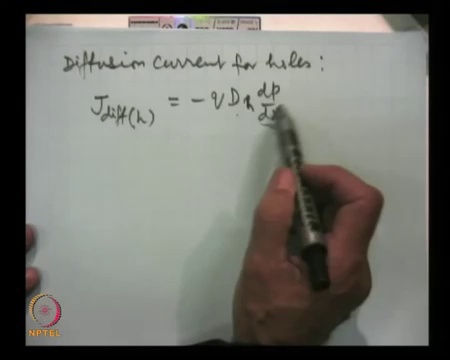 Diffusion Current for holes :
J_diff(h) = - q D_h dp/dx
NPTEL